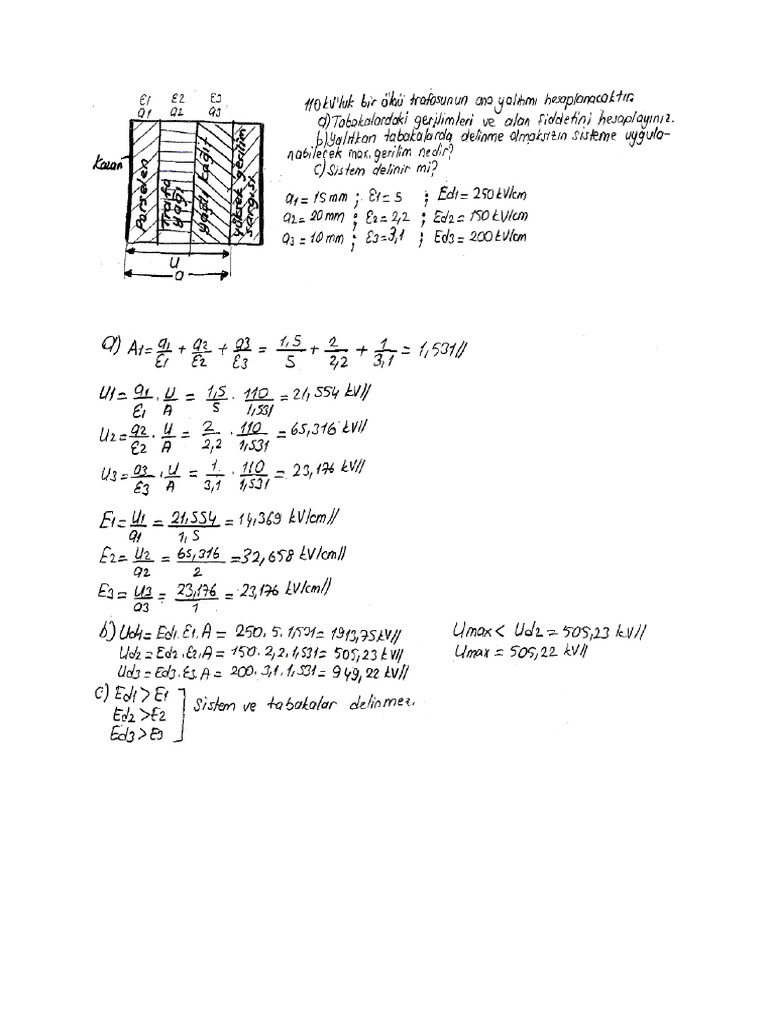 ε1 ε2 ε3
a1 a2 a3
Kazan
Porselen
Trafo yağı
yağlı kağıt
yüksek gerilim sargısı
U
a
110 kV'luk bir ölçü trafosunun ana yalıtımı hesaplanacaktır.
a) Tabakalardaki gerilimleri ve alan şiddetini hesaplayınız.
b) Yalıtkan tabakalarda delinme olmaksızın sisteme uygula-
nabilecek max. gerilim nedir?
c) Sistem delinir mi?
a1 = 15 mm ; ε1 = 5 ; Ed1 = 250 kV/cm
a2 = 20 mm ; ε2 = 2,2 ; Ed2 = 150 kV/cm
a3 = 10 mm ; ε3 = 3,1 ; Ed3 = 200 kV/cm
a) A1 = a1/ε1 + a2/ε2 + a3/ε3 = 1,5/5 + 2/2,2 + 1/3,1 = 1,531//
U1 = a1/ε1 . U/A = 1,5/5 . 110/1,531 = 21,554 kV//
U2 = a2/ε2 . U/A = 2/2,2 . 110/1,531 = 65,316 kV//
U3 = a3/ε3 . U/A = 1/3,1 . 110/1,531 = 23,176 kV//
E1 = U1/a1 = 21,554/1,5 = 14,369 kV/cm//
E2 = U2/a2 = 65,316/2 = 32,658 kV/cm//
E3 = U3/a3 = 23,176/1 = 23,176 kV/cm//
b) Ud1 = Ed1.ε1.A = 250.5.1,531 = 1913,75 kV//
Ud2 = Ed2.ε2.A = 150.2,2.1,531 = 505,23 kV//
Ud3 = Ed3.ε3.A = 200.3,1.1,531 = 949,22 kV//
Umax < Ud2 = 505,23 kV//
Umax = 505,22 kV//
c) Ed1 > E1
Ed2 > E2
Ed3 > E3
Sistem ve tabakalar delinmez.